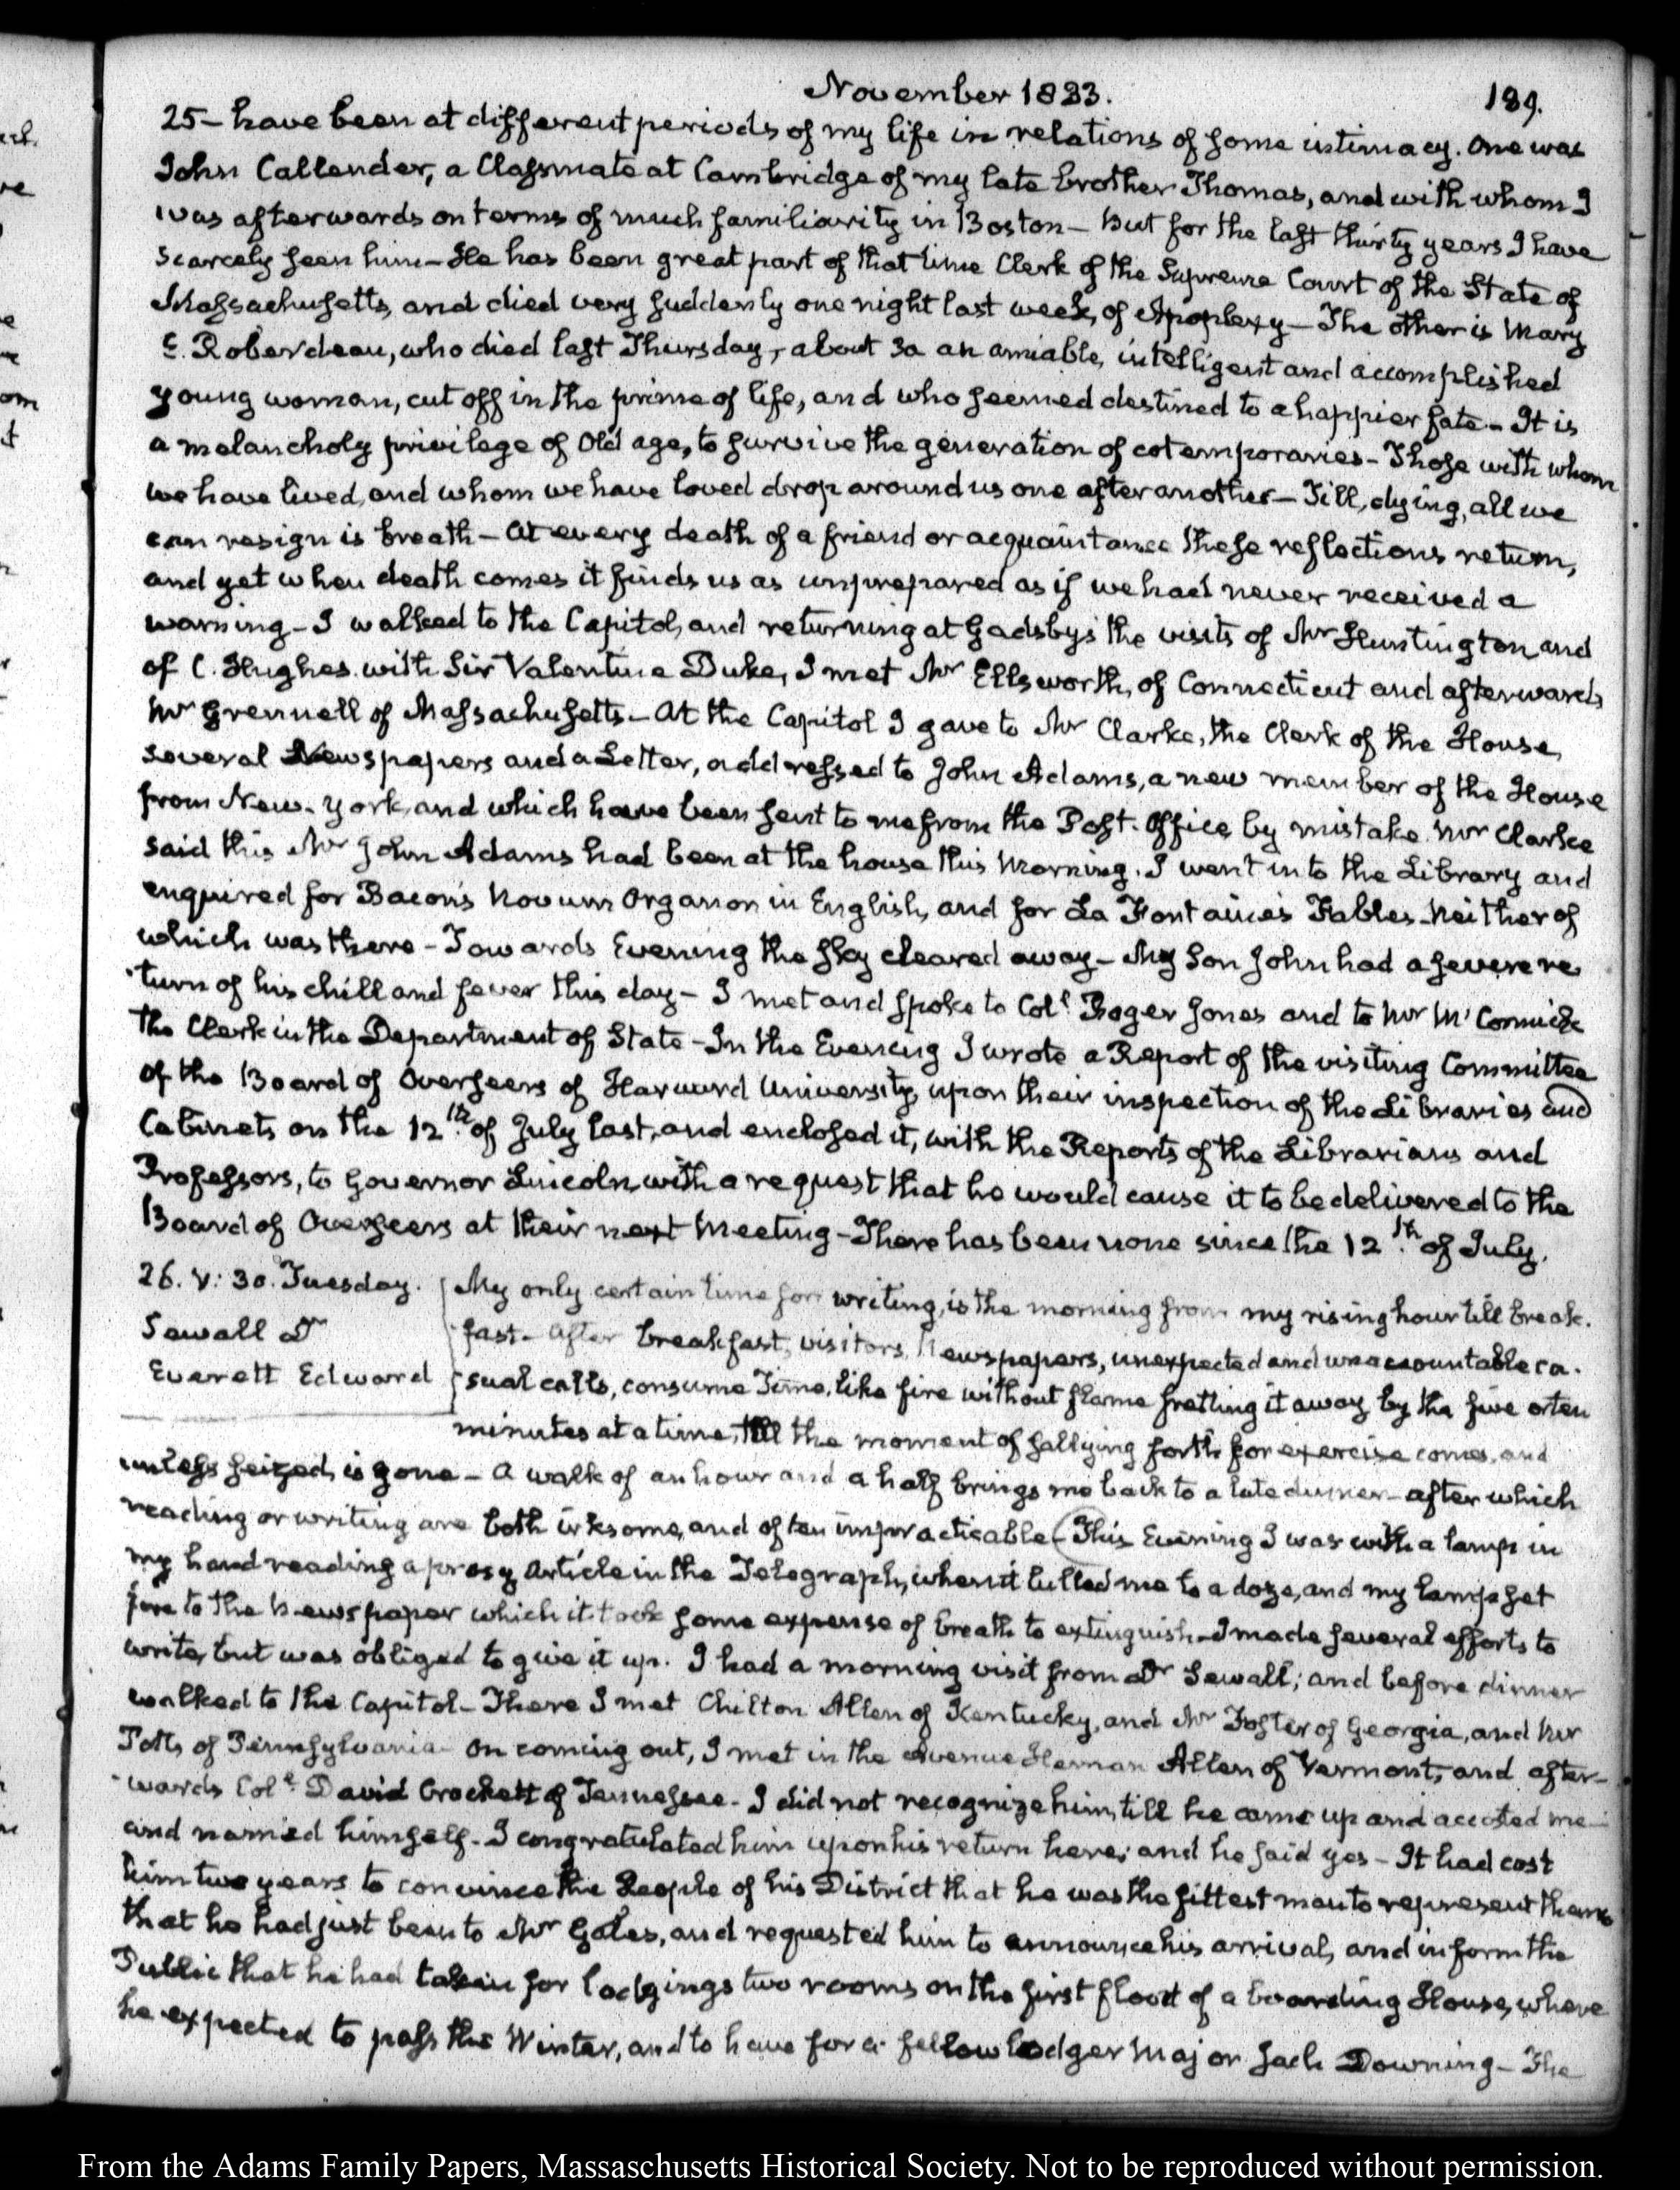 November 1833.
189.
25 – have been at different periods of my life in relations of some intimacy. One was
John Callender, a Classmate at Cambridge of my late brother Thomas, and with whom I
was afterwards on terms of much familiarity in Boston – but for the last thirty years I have
scarcely seen him – He has been great part of that time Clerk of the Supreme Court of the State of
Massachusetts, and died very suddenly one night last week, of Apoplexy – The other is Mary
E. Roberdeau, who died last Thursday, about 30 an amiable, intelligent and accomplished
young woman, cut off in the prime of life, and who seemed destined to a happier fate – It is
a melancholy privilege of Old age, to survive the generation of cotemporaries – Those with whom
we have lived, and whom we have loved drop around us one after another – Till, dying, all we
can resign is breath – At every death of a friend or acquaintance these reflections return,
and yet when death comes it finds us as unprepared as if we had never received a
warning – I walked to the Capitol, and returning at Gadsby's the visits of Mr Huntington and
of C. Hughes with Sir Valentine Duke, I met Mr Ellsworth, of Connecticut and afterwards
Mr Grennell of Massachusetts – At the Capitol I gave to Mr Clarke, the Clerk of the House,
several Newspapers and a Letter, addressed to John Adams, a new member of the House
from New-York, and which have been sent to me from the Post-Office by mistake. Mr Clarke
said this Mr John Adams had been at the house this Morning. I went into the Library and
enquired for Bacon's Novum Organon in English, and for La Fontaine's Fables – Neither of
which was there – Towards Evening the sky cleared away – My Son John had a severe re
turn of his chill and fever this day – I met and spoke to Coll Roger Jones and to Mr McCormick
the Clerk in the Department of State – In the Evening I wrote a Report of the visiting Committee
of the Board of Overseers of Harvard University, upon their inspection of the Libraries and
Cabinets on the 12th of July last, and enclosed it, with the Reports of the Librarians and
Professors, to Governor Lincoln, with a request that he would cause it to be delivered to the
Board of Overseers at their next Meeting – There has been none since the 12th of July.
26. V: 30. Tuesday.
Sewall Dr
Everett Edward
My only certain time for writing, is the morning from my rising hour till break-
fast – After breakfast, visitors, Newspapers, unexpected and unaccountable ca-
sual calls, consume Time, like fire without flame fretting it away by the five or ten
minutes at a time, till the moment of sallying forth for exercise comes, and
unless seized, is gone – A walk of an hour and a half brings me back to a late dinner – after which
reading or writing are both irksome, and often impracticable – This Evening I was with a lamp in
my hand reading a prosy Article in the Telegraph, when it lulled me to a doze, and my lamp set
fire to the Newspaper which it took some expense of breath to extinguish – I made several efforts to
write, but was obliged to give it up. I had a morning visit from Dr Sewall; and before dinner
walked to the Capitol – There I met Chilton Allen of Kentucky, and Mr Foster of Georgia, and Mr
Potts of Pennsylvania – On coming out, I met in the Avenue Heman Allen of Vermont, and after-
wards Coll David Crockett of Tennessee – I did not recognize him, till he came up and accosted me
and named himself – I congratulated him upon his return here; and he said yes – It had cost
him two years to convince the People of his District that he was the fittest man to represent them
that he had just been to Mr Gales, and requested him to announce his arrival, and inform the
Public that he had taken for lodgings two rooms on the first floor of a boarding House, where
he expected to pass the Winter, and to have for a fellow lodger Major Jack Downing – The
From the Adams Family Papers, Massachusetts Historical Society. Not to be reproduced without permission.